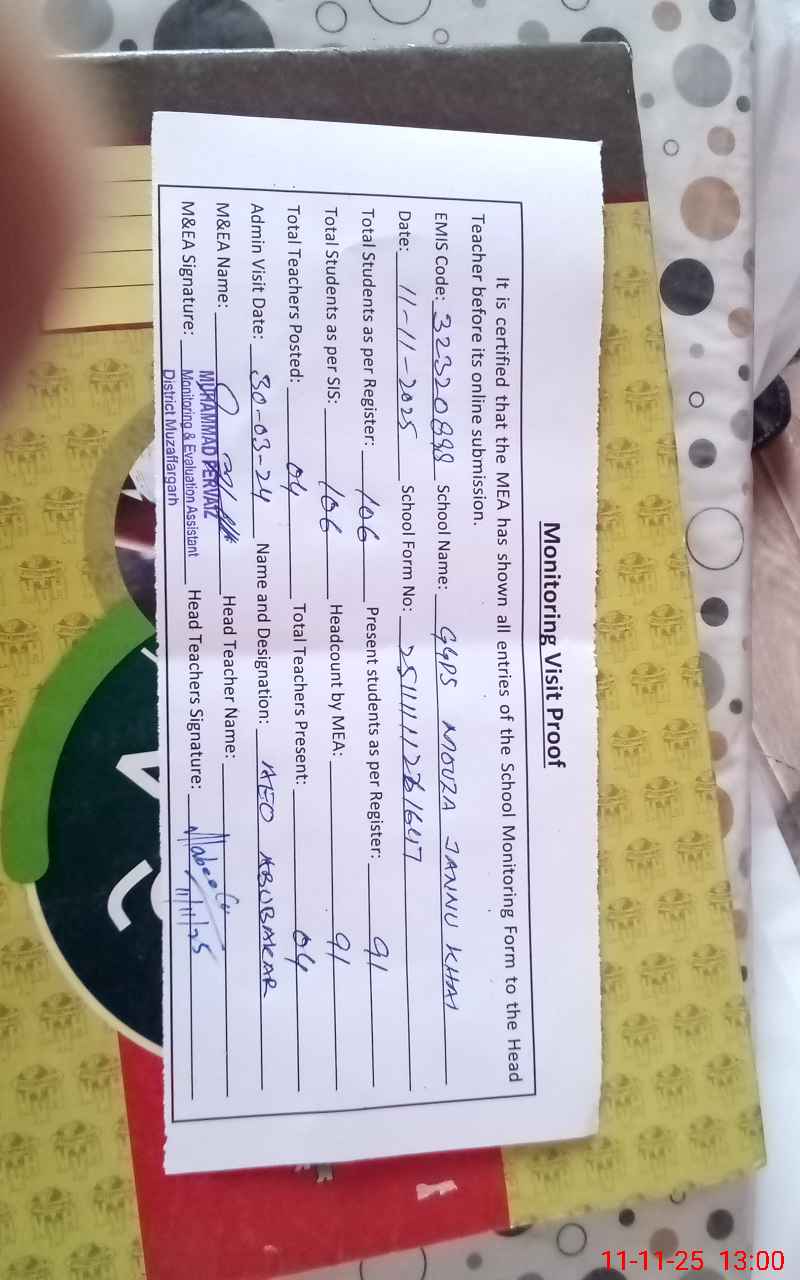 Monitoring Visit Proof
It is certified that the MEA has shown all entries of the School Monitoring Form to the Head
Teacher before its online submission.
EMIS Code: 32320898 School Name: GGPS MOUZA JANNU KHAI
Date: 11-11-2025 School Form No:
Total Students as per Register: 106 Present students as per Register: 91
Total Students as per SIS: 106 Headcount by MEA: 91
Total Teachers Posted: 04 Total Teachers Present: 04
Admin Visit Date: 30-03-24 Name and Designation: AEO ABUBAKAR
M&EA Name: Head Teacher Name:
M&EA Signature: Head Teachers Signature: 11/11/25
MUHAMMAD PERVAIZ
Monitoring & Evaluation Assistant
District Muzaffargarh
11-11-25 13:00